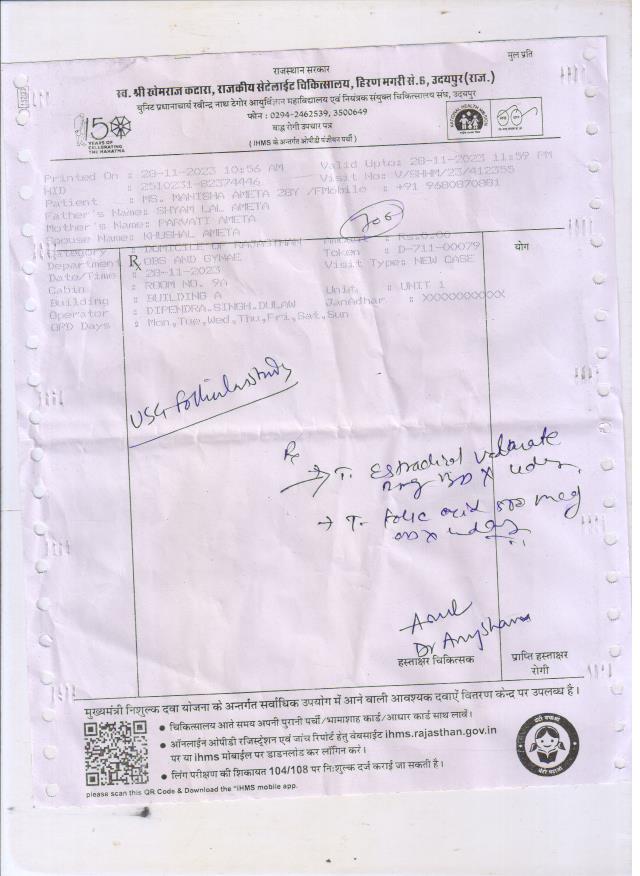 मुल प्रति
राजस्थान सरकार
स्व. श्री खेमराज कटारा, राजकीय सेटेलाईट चिकित्सालय, हिरण मगरी सं.6, उदयपुर(राज.)
युनिट प्रधानाचार्य रवीन्द्र नाथ टेगोर आयुर्विज्ञान महाविद्यालय एवं नियंत्रक संयुक्त चिकित्सालय संघ, उदयपुर
फोन : 0294-2462539, 3500649
बाह्य रोगी उपचार पत्र
( IHMS के अन्तर्गत ओपीडी पंजीयन पर्ची )
150
YEARS OF
CELEBRATING
THE MAHATMA
NATIONAL HEALTH MISSION
Printed On : 28-11-2023 10:56 AM Valid Upto: 28-11-2023 11:59 PM
HID : 2510231-82374446 Visit No: V/SHHM/23/412355
Patient : MS. MANISHA AMETA 28Y /F Mobile : +91 9680870881
Father's Name: SHYAM LAL AMETA
Mother's Name: PARVATI AMETA
Spouse Name: KHUSHAL AMETA
Category : DOMICILE OF RAJASTHAN Amount : Rs.0.00
Department : OBS AND GYNAE Token : D-711-00079
Date/Time : 28-11-2023 Visit Type: NEW CASE
Cabin : ROOM NO. 9A
Building : BUILDING A Unit : UNIT 1
Operator : DIPENDRA.SINGH.DULAW JanAadhar : XXXXXXXXXXX
OPD Days : Mon,Tue,Wed,Thu,Fri,Sat,Sun
योग
Rx
USG follicular study
Rx
→ T. Estradiol valerate
BD X
→ T. folic acid mcg
Dr
हस्ताक्षर चिकित्सक
प्राप्ति हस्ताक्षर
रोगी
मुख्यमंत्री निशुल्क दवा योजना के अन्तर्गत सर्वाधिक उपयोग में आने वाली आवश्यक दवाएँ वितरण केन्द्र पर उपलब्ध है।
● चिकित्सालय आते समय अपनी पुरानी पर्ची/भामाशाह कार्ड/आधार कार्ड साथ लावें।
● ऑनलाईन ओपीडी रजिस्ट्रेशन एवं जांच रिपोर्ट हेतु वेबसाईट ihms.rajasthan.gov.in
पर या ihms मोबाईल पर डाउनलोड कर लॉगिन करें।
● लिंग परीक्षण की शिकायत 104/108 पर निःशुल्क दर्ज कराई जा सकती है।
please scan this QR Code & Download the "IHMS mobile app.
बेटी बचाओ
बेटी पढ़ाओ